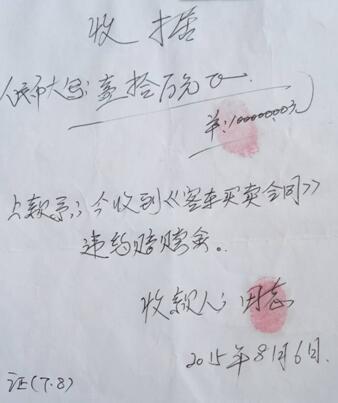 收据
人民币大写:壹拾万元正.
￥:100000.00元
上款系;今收到《客车买卖合同》
违约赔赏金。
收款人:田
2015年8月6日.
证(7.8)